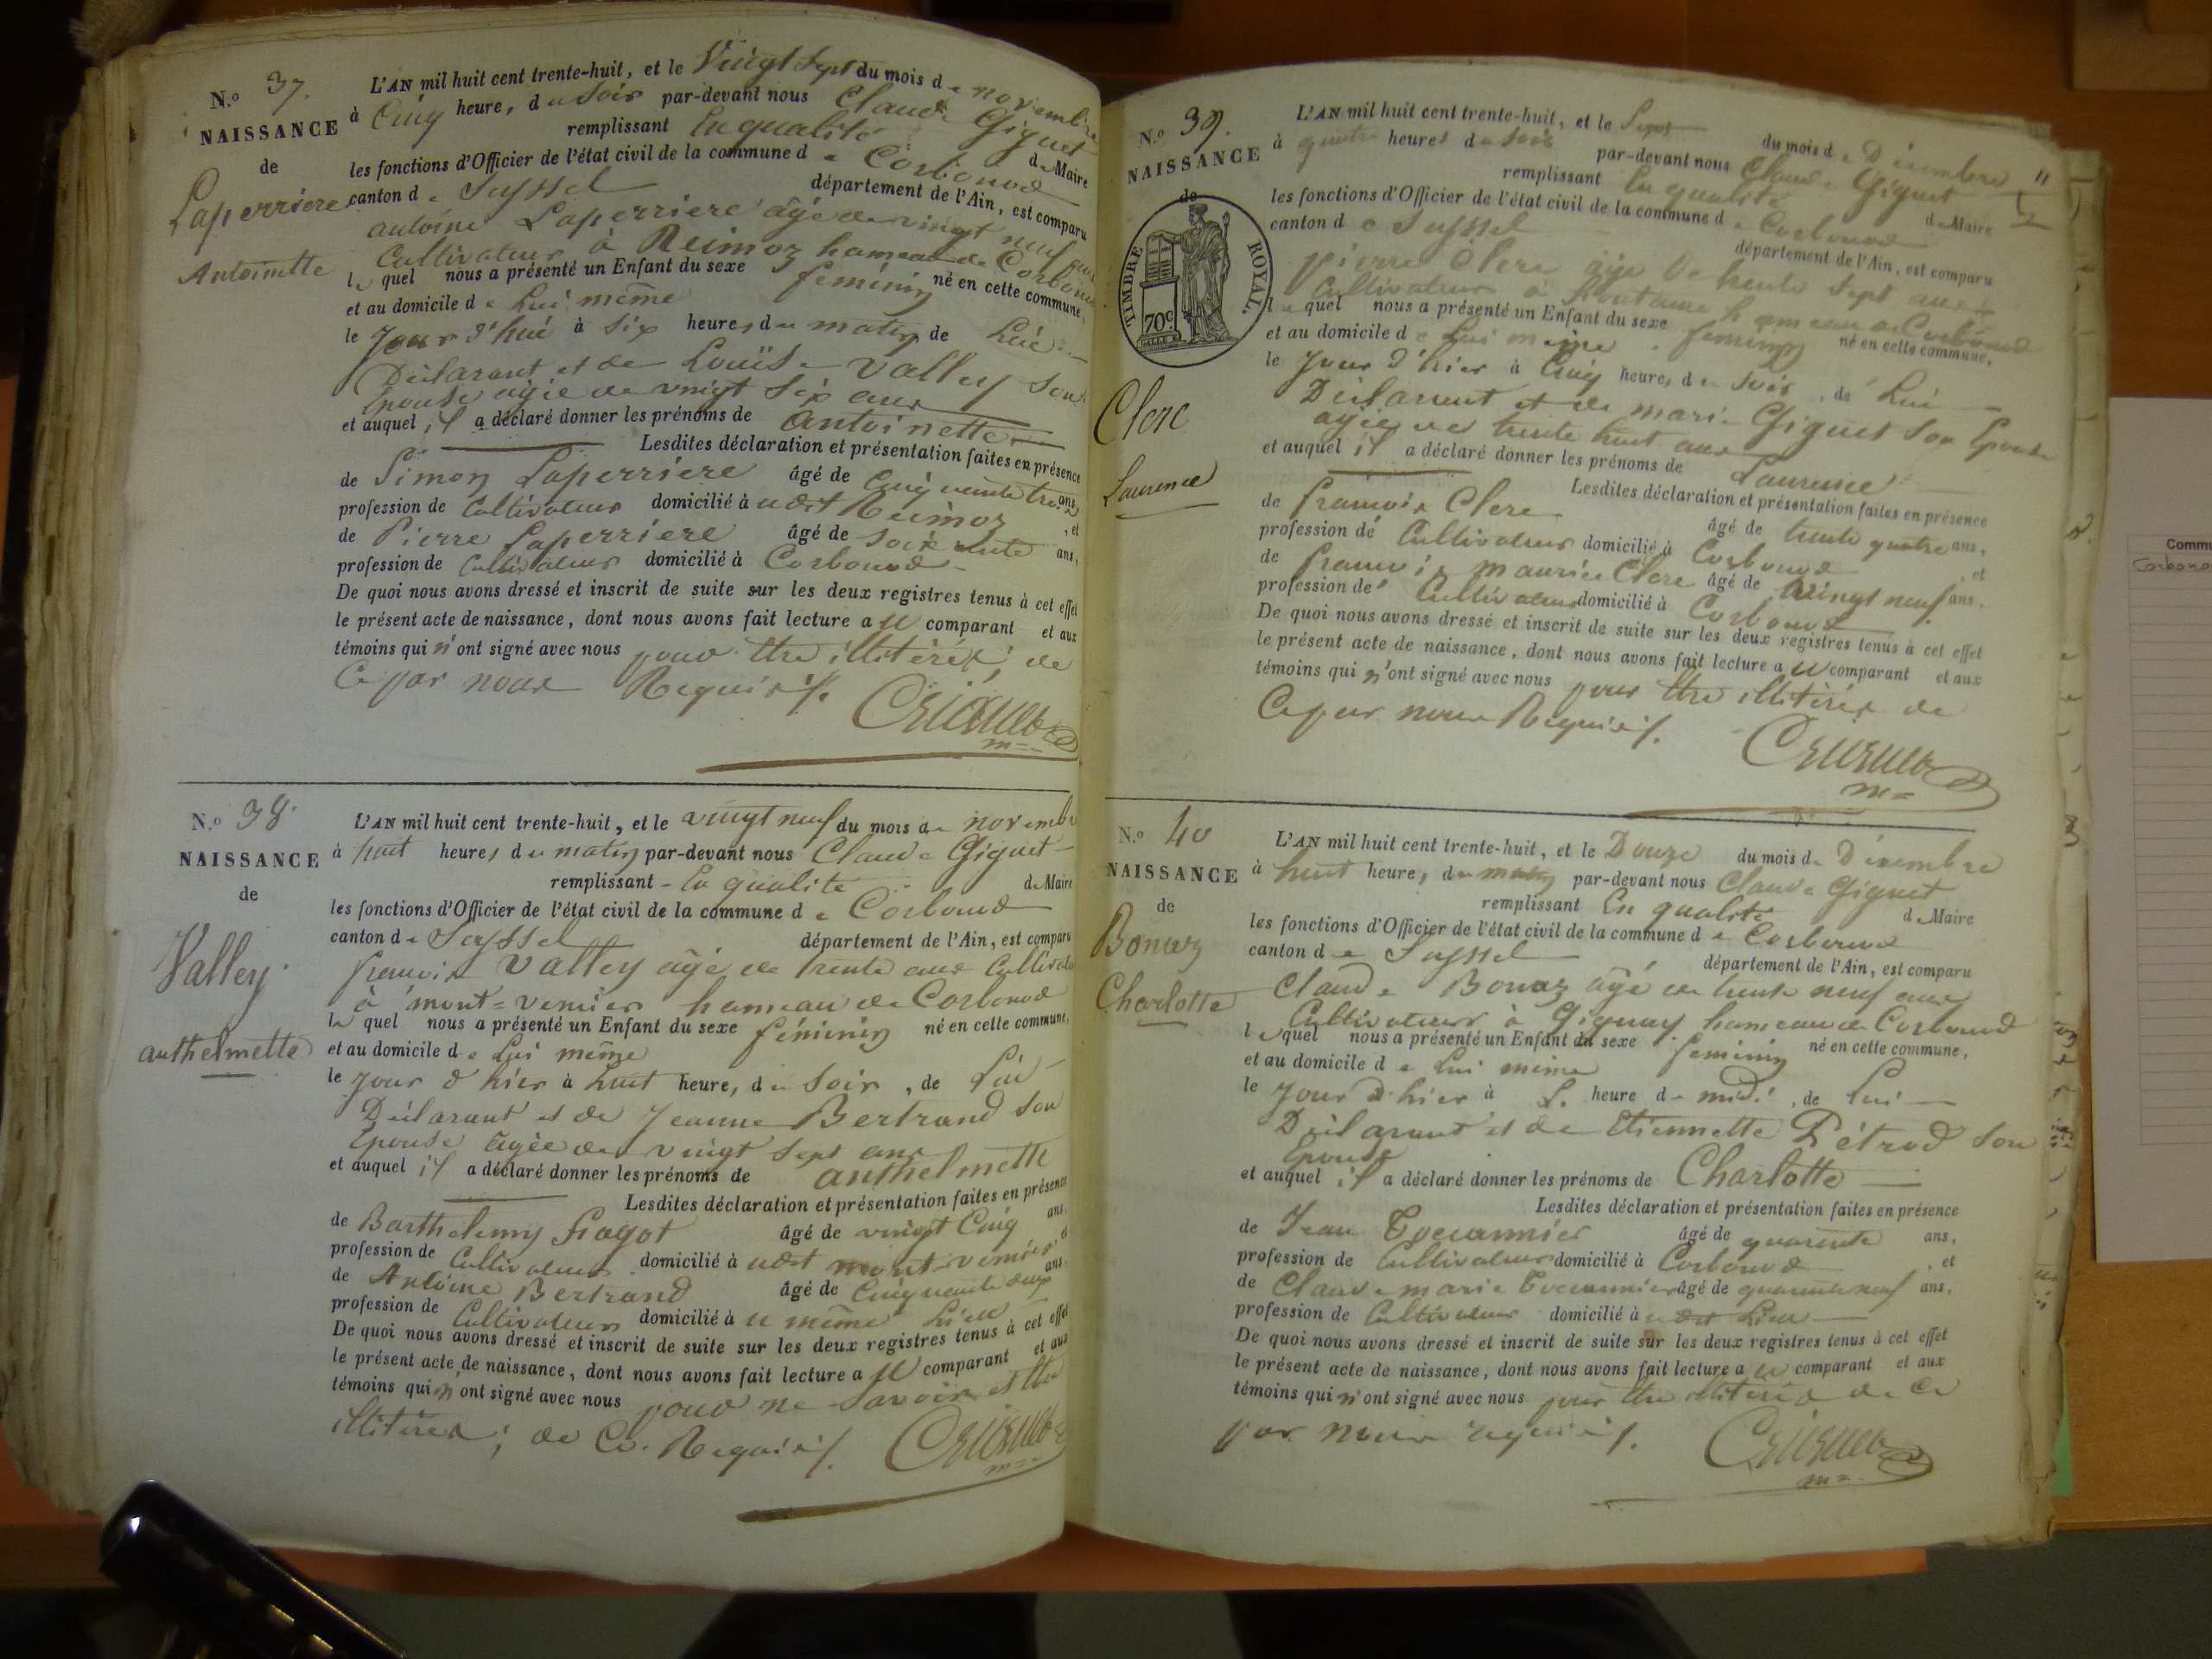 N.o 37.
NAISSANCE
de
Laperriere
Antoinette
L'AN mil huit cent trente-huit, et le Vingt Sept du mois de novembre
à Cinq heure, du Soir par-devant nous Claude Giguet
remplissant En qualité de Maire
les fonctions d'Officier de l'état civil de la commune de Corbonod
canton de Seyssel département de l'Ain, est comparu
antoine Laperriere âgé de vingt neuf ans
Cultivateur à Reimoz hameau de Corbonod
le quel nous a présenté un Enfant du sexe féminin né en cette commune,
et au domicile de Lui même
le Jour d'hui à Six heures du matin de Lui
Déclarant et de Louïse Valley Son
Epouse agée de vingt Six ans
et auquel il a déclaré donner les prénoms de antoinette
Lesdites déclaration et présentation faites en présence
de Simon Laperriere âgé de Cinquante trois ans,
profession de Cultivateur domicilié à udit Reimoz, et
de Pierre Laperriere âgé de Soixante ans,
profession de Cultivateur domicilié à Corbonod
De quoi nous avons dressé et inscrit de suite sur les deux registres tenus à cet effet
le présent acte de naissance, dont nous avons fait lecture au comparant et aux
témoins qui n'ont signé avec nous pour être illitérés, de
Ce par nous Requis.
Giguet
m=
N.o 38.
NAISSANCE
de
Valley
anthelmette
L'AN mil huit cent trente-huit, et le vingt neuf du mois de novembre
à huit heures du matin par-devant nous Claude Giguet
remplissant En qualité de Maire
les fonctions d'Officier de l'état civil de la commune de Corbonod
canton de Seyssel département de l'Ain, est comparu
francois Valley âgé de trente ans Cultivateur
à mont=vernier hameau de Corbonod
le quel nous a présenté un Enfant du sexe féminin né en cette commune,
et au domicile de Lui même
le Jour d hier à huit heure, du Soir, de Lui
Déclarant et de Jeanne Bertrand Son
Epouse agée de vingt Sept ans
et auquel il a déclaré donner les prénoms de anthelmette
Lesdites déclaration et présentation faites en présence
de Barthelemy fragot âgé de vingt Cinq ans,
profession de Cultivateur domicilié à udit mont-vernier et
de Antoine Bertrand âgé de Cinquante deux ans,
profession de Cultivateur domicilié à u même Lieu
De quoi nous avons dressé et inscrit de suite sur les deux registres tenus à cet effet
le présent acte de naissance, dont nous avons fait lecture au comparant et aux
témoins qui n'ont signé avec nous pour ne Savoir et être
illitérés; de Ce Requis.
Giguet
m=
11
N.o 39.
NAISSANCE
de
TIMBRE ROYAL.
70c
Clerc
Laurence
L'AN mil huit cent trente-huit, et le Sept du mois de Décembre
à quatre heures du Soir par-devant nous Claude Giguet
remplissant En qualité de Maire
les fonctions d'Officier de l'état civil de la commune de Corbonod
canton de Seyssel département de l'Ain, est comparu
pierre Clerc âgé de trente Sept ans
Cultivateur à hameau de Corbonod
le quel nous a présenté un Enfant du sexe féminin né en cette commune,
et au domicile de Lui même
le Jour d'hier à Cinq heure, du Soir, de Lui
Déclarant et de marie Giguet Son Epouse
agée de trente huit ans
et auquel il a déclaré donner les prénoms de Laurence
Lesdites déclaration et présentation faites en présence
de francois Clerc âgé de trente quatre ans,
profession de Cultivateur domicilié à Corbonod, et
de francois maurice Clerc âgé de vingt neuf ans.
profession de Cultivateur domicilié à Corbonod
De quoi nous avons dressé et inscrit de suite sur les deux registres tenus à cet effet
le présent acte de naissance, dont nous avons fait lecture au comparant et aux
témoins qui n'ont signé avec nous pour être illitérés de
Ce par nous Requis.
Giguet
m=
N.o 40
NAISSANCE
de
Bonaz
Charlotte
L'AN mil huit cent trente-huit, et le Douze du mois de Décembre
à huit heure, du matin par-devant nous Claude Giguet
remplissant En qualité de Maire
les fonctions d'Officier de l'état civil de la commune de Corbonod
canton de Seyssel département de l'Ain, est comparu
Claude Bonaz âgé de trente neuf ans
Cultivateur à Gignay hameau de Corbonod
le quel nous a présenté un Enfant du sexe féminin né en cette commune,
et au domicile de Lui même
le Jour d'hier à L. heure de midi, de Lui
Déclarant et de Etiennette Pétrod Son
Epouse
et auquel il a déclaré donner les prénoms de Charlotte
Lesdites déclaration et présentation faites en présence
de Jean âgé de quarante ans,
profession de Cultivateur domicilié à Corbonod, et
de Claude marie âgé de quarante neuf ans,
profession de Cultivateur domicilié à udit Lieu
De quoi nous avons dressé et inscrit de suite sur les deux registres tenus à cet effet
le présent acte de naissance, dont nous avons fait lecture au comparant et aux
témoins qui n'ont signé avec nous pour être illitérés de Ce
par nous requis.
Giguet
m=
Commu
Corbono